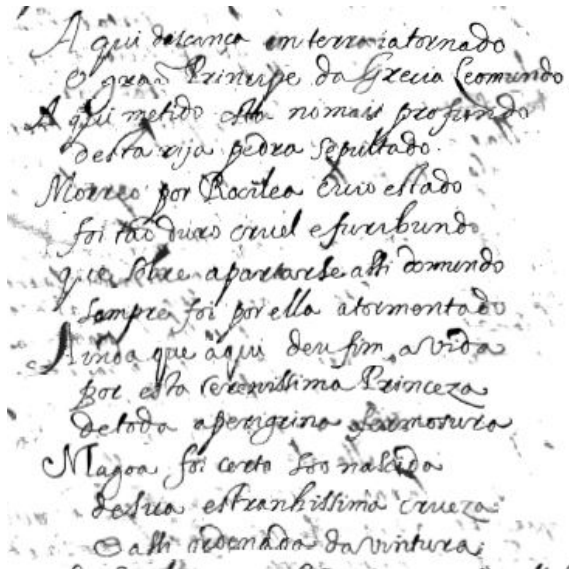 Aqui descança em terra ia tornado
o grão Principe da Grecia Leomundo
Aqui metido esta no mais profundo
desta rija pedra sepultado.
Morreo por Rocilea cuio estado
foi tão duro cruel e furibundo
que sobre apartarse assi do mundo
sempre foi por ella atormentado
Ainda que aqui deu fim a vida
por esta serenissima Princeza
de toda a perigrina fermosura
Magoa foi certo so nascida
de sua estranhissima crueza
assi ordenada da vintura